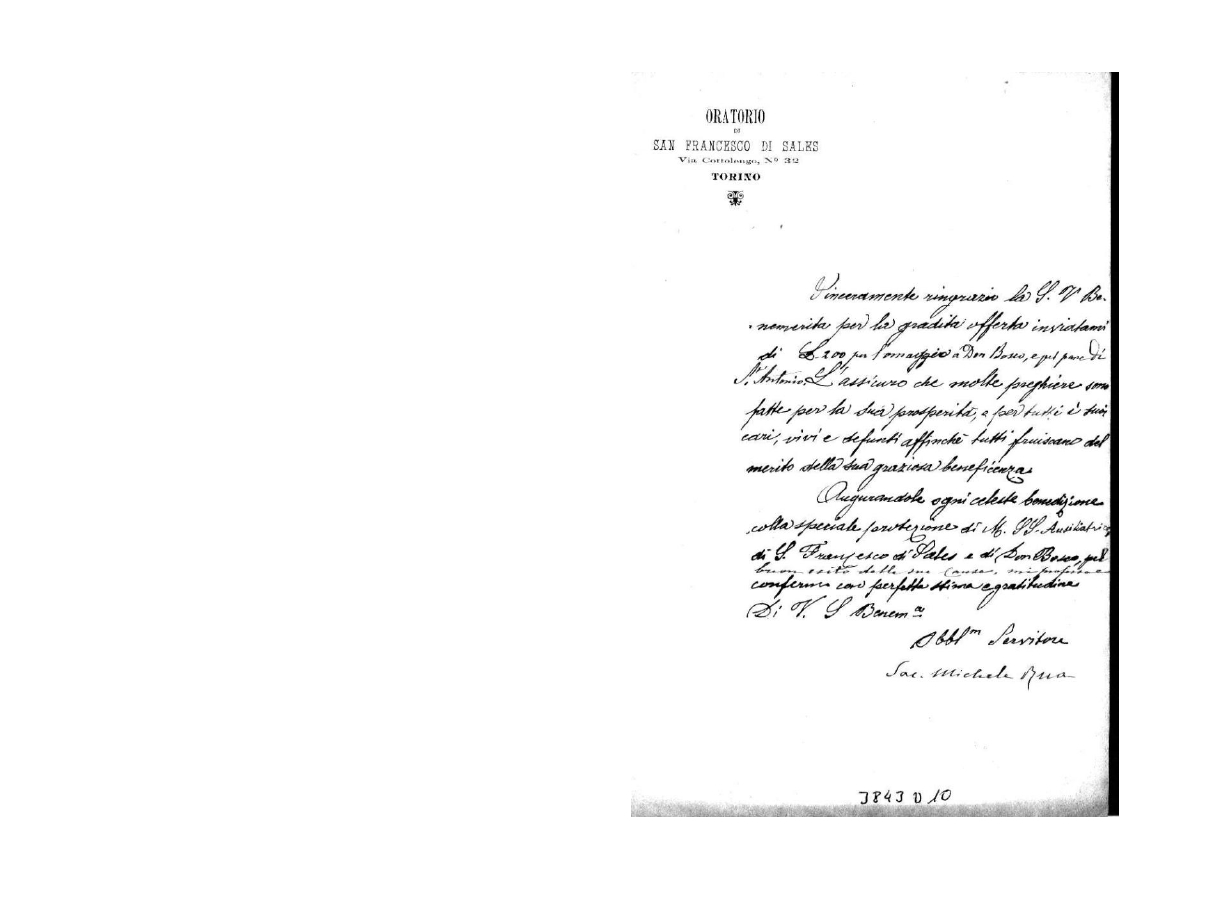 ORATORIO
DI
SAN FRANCESCO DI SALES
Via Cottolengo, Nº 32
TORINO
Sinceramente ringrazio la S. V. Be-
nemerita per la gradita offerta inviatami
di £ 200 per l'omaggio a Don Bosco, e pel pane di
S. Antonio. L'assicuro che molte preghiere sono
fatte per la sua prosperità, e per tutti i suoi
cari, vivi e defunti affinchè tutti fruiscano del
merito della sua graziosa beneficenza
Augurandole ogni celeste benedizione
colla speciale protezione di M. SS. Ausiliatrice
di S. Francesco di Sales e di Don Bosco, pel
buon esito delle sue cause, mi professo e
confermo con perfetta stima e gratitudine
Di V. S Benemª
Obblm Servitore
Sac. Michele Rua
3843 D 10